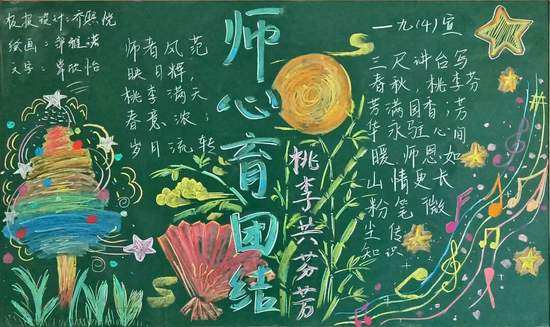 板报设计:
绘画:
文字:欣怡
师者风范
映日辉，
桃李满天
春意浓；
岁月流转
师心育团结
桃李共芬芳
一九(4)宣
三尺讲台写
春秋，桃李芬
芳满园香；芳
华永驻心间
暖.师恩如
山情更长
粉笔微
尘传
知识